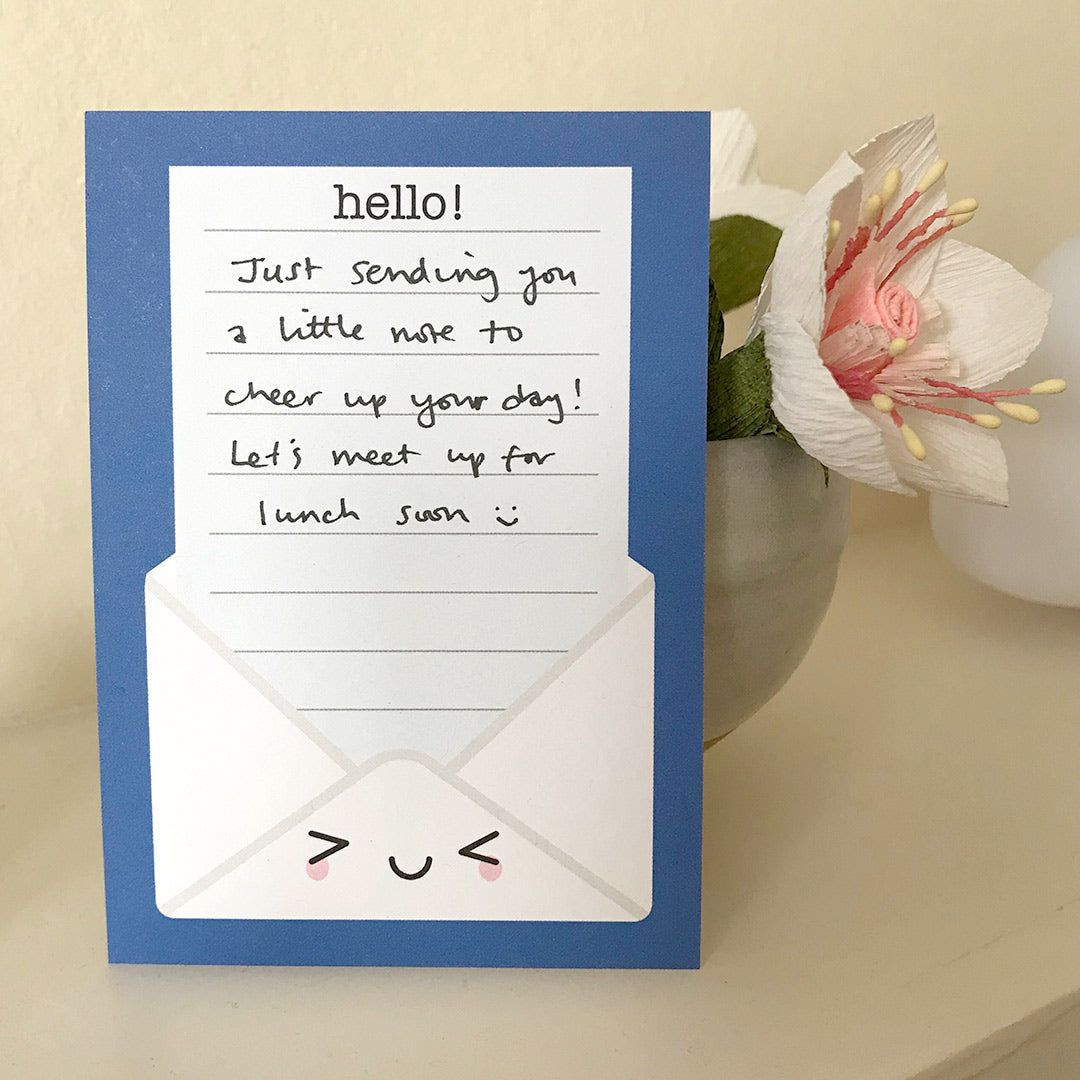 hello!
Just sending you
a little note to
cheer up your day!
Let's meet up for
lunch soon :)